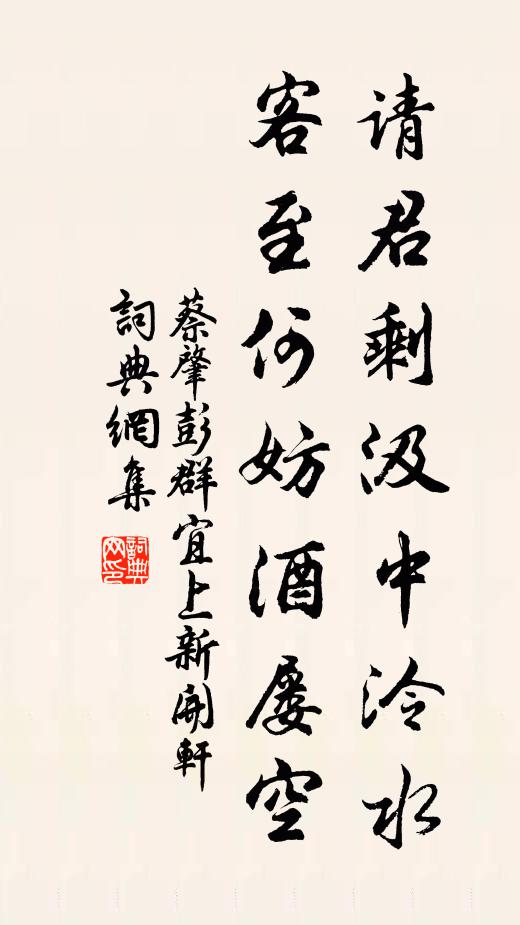 请君剩汲中泠水
客至何妨酒屡空
蔡肇彭群宜上新開軒
詞典網集
詞典
网印